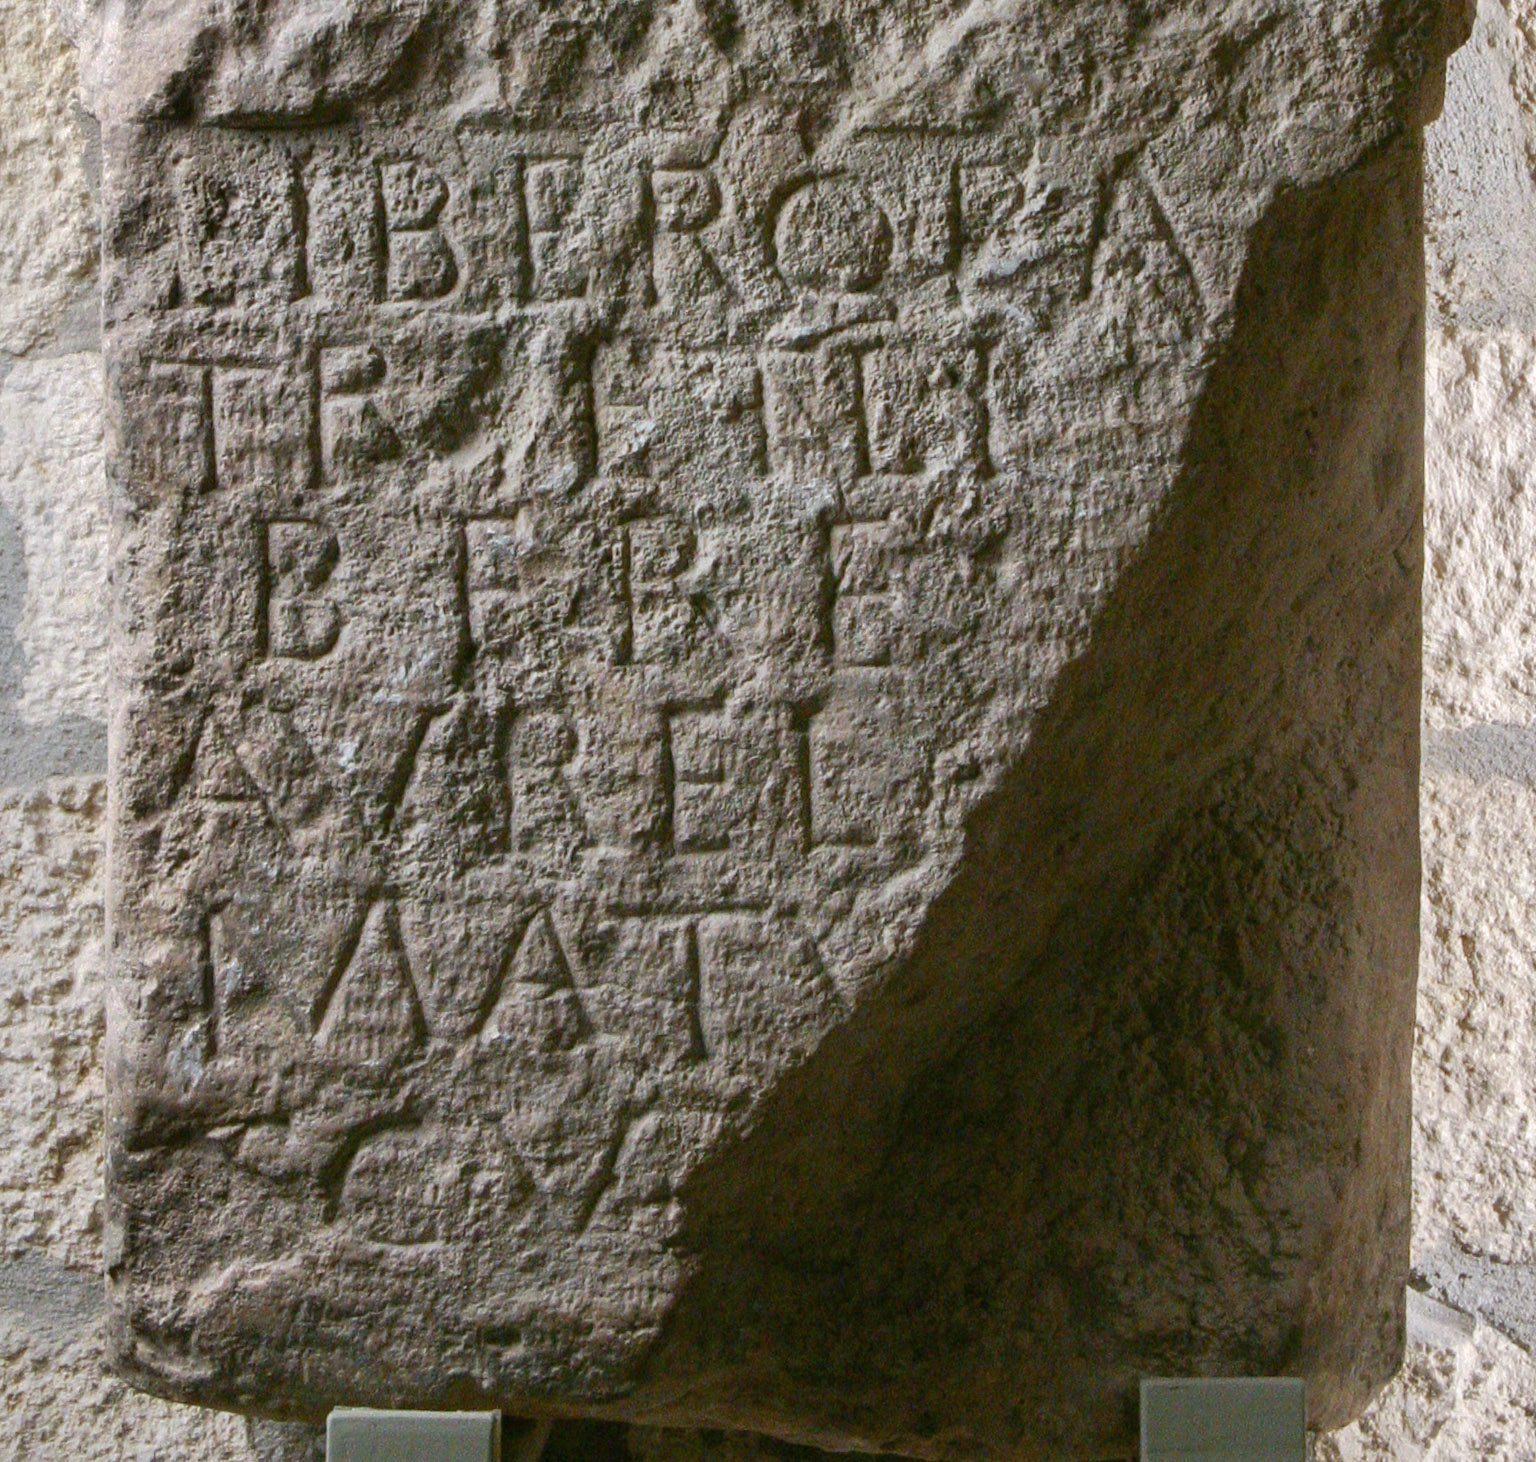 LIBERO PA
TRI ET LI
BERE
AVREL
LAAT
CV